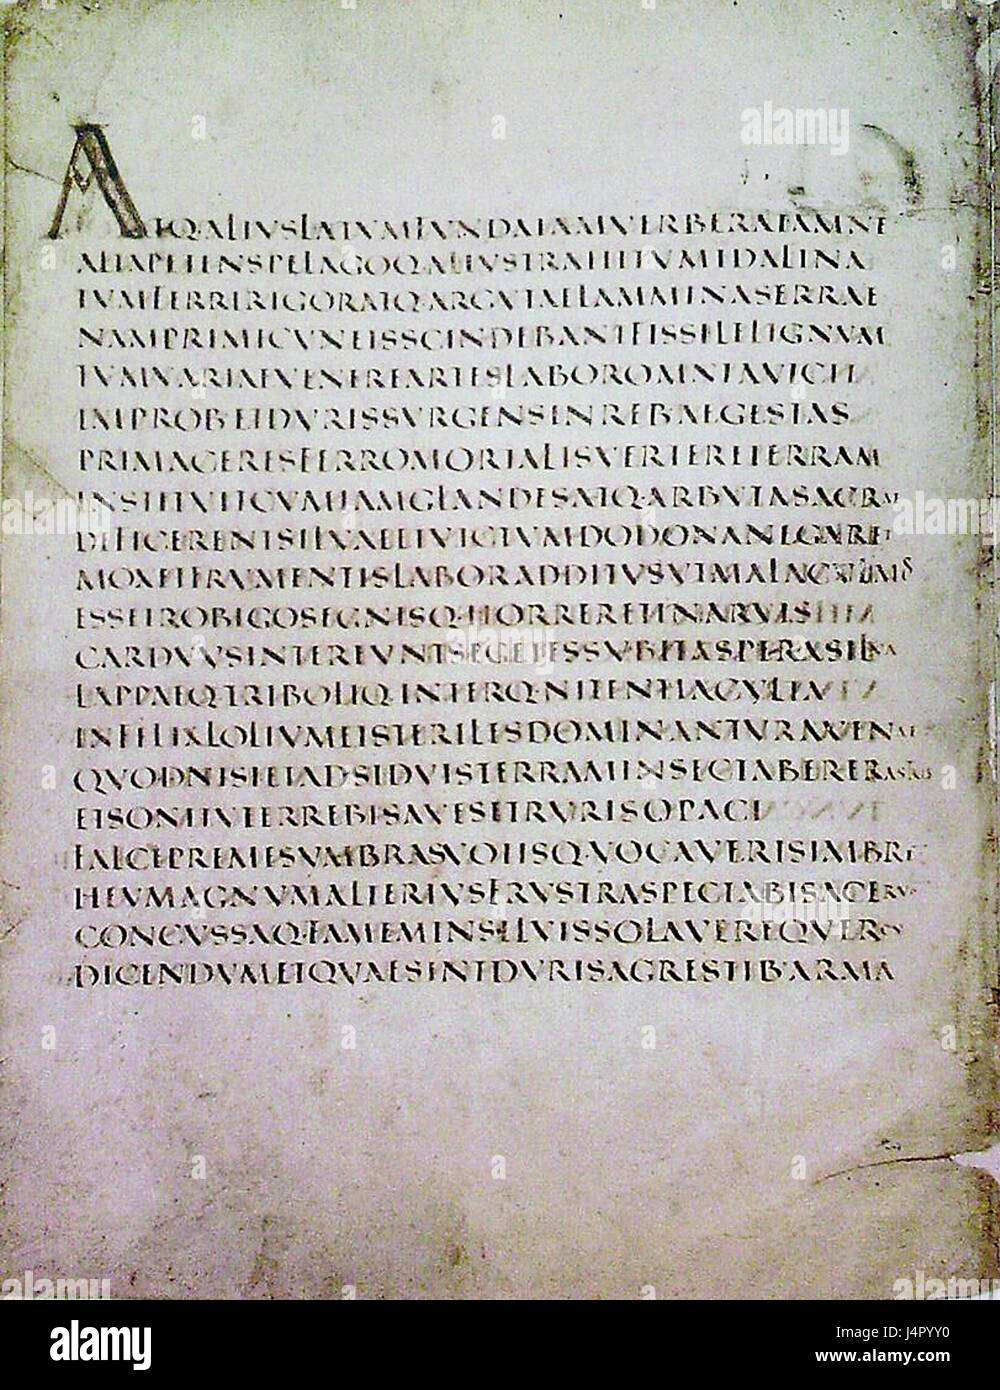 ATQ·ALIVSLATVMFVNDAIAMVERBERATAMNE
ALTAPETENSPELAGOQ·ALIVSTRAHITVMIDALINA
TVMFERRIRIGORATQ·ARGVTAELAMMINASERRAE
NAMPRIMICVNEISSCINDEBANTFISSILELIGNVM
TVMVARIAEVENEREARTESLABOROMNIAVICIT
IMPROBETDVRISSVRGENSINREBAEGESTAS
PRIMACERESFERROMORTALISVERTERETERRAM
INSTITVITCVMIAMGLANDESATQ·ARBVTASACRAE
DEFICERENTSILVAEETVICTVMDODONANEGARET
MOXETFRVMENTISLABORADDITVSVTMALACVLMOS
ESSETROBIGOSEGNISQ·HORRERETINARVIS
CARDVVSINTEREVNTSEGETESSVBITASPERASILVA
LAPPAEQ·TRIBOLIQ·INTERQ·NITENTIACVLTA
INFELIXLOLIVMETSTERILESDOMINANTVRAVENAE
QVODNISIETADSIDVISTERRAMINSECTABERERASTRIS
ETSONITVTERREBISAVESETRVRISOPACI
FALCEPREMESVMBRASVOTISQ·VOCAVERISIMBRE
HEVMAGNVMALTERIVSFRVSTRASPECTABISACERV
CONCVSSAQ·FAMEMINSILVISSOLAVEREQVERCV
DICENDVMETQVAESINTDVRISAGRESTIB·ARMA
alamy
Image ID: J4PYY0
www.alamy.com